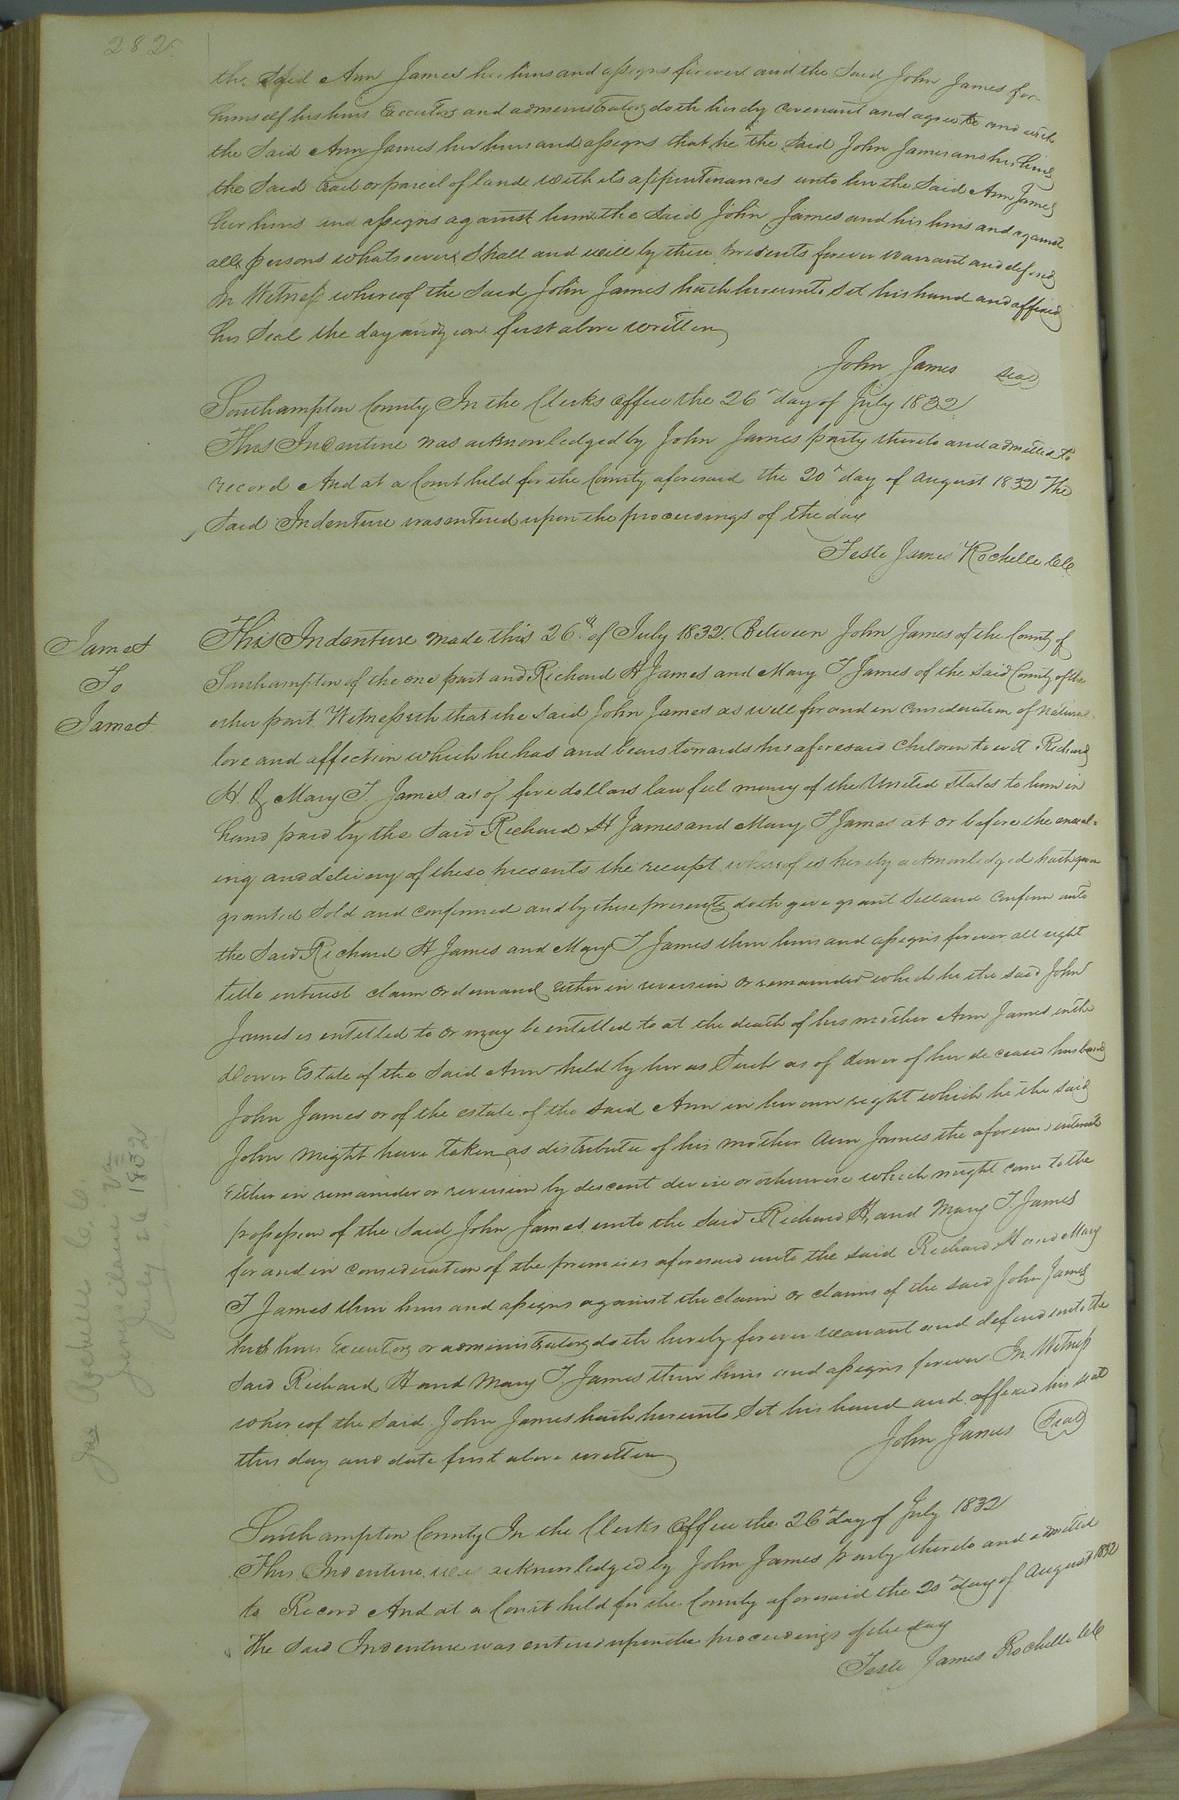 282.
the said Ann James her heirs and assigns forever and the said John James for
himself his heirs Executors and administrators doth hereby covenant and agree to and with
the said Ann James her heirs and assigns that he the said John James and his heirs
the said tract or parcel of land with its appurtenances unto her the said Ann James
her heirs and assigns against him the said John James and his heirs and against
all persons whatsoever shall and will by these presents forever warrant and defend
In Witness whereof the said John James hath hereunto set his hand and affixed
his Seal the day and year first above written
John James Seal
Southampton County In the Clerks office the 26 day of July 1832
This Indenture was acknowledged by John James party thereto and admitted to
record And at a Court held for the County aforesaid the 20 day of August 1832 The
said Indenture was entered upon the proceedings of the day
Teste James Rochelle CC
James
To
James
This Indenture made this 26th of July 1832. Between John James of the County of
Southampton of the one part and Richard H James and Mary T James of the said County of the
other part Witnesseth that the said John James as well for and in consideration of natural
love and affection which he has and bears towards his aforesaid children to wit Richard
H. & Mary T. James as of five dollars lawful money of the United States to him in
hand paid by the said Richard H James and Mary T James at or before the enseal-
ing and delivery of these presents the receipt whereof is hereby acknowledged hath given
granted sold and confirmed and by these presents doth give grant sell and confirm unto
the said Richard H James and Mary T James their heirs and assigns forever all right
title interest claim or demand either in reversion or remainder which he the said John
James is entitled to or may be entitled to at the death of his mother Ann James in the
dower Estate of the said Ann held by her as such as of dower of her deceased husband
John James or of the estate of the said Ann in her own right which he the said
John might have taken as distributee of his mother Ann James the aforesaid interest
either in remainder or reversion by descent devise or otherwise which might come to the
possession of the said John James unto the said Richard H, and Mary T. James
for and in consideration of the premises aforesaid unto the said Richard H and Mary
T James their heirs and assigns against the claim or claims of the said John James
his heirs Executors or administrators doth hereby forever warrant and defend unto the
said Richard H and Mary T. James their heirs and assigns forever In Witness
whereof the said John James hath hereunto set his hand and affixed his seal
this day and date first above written
John James Seal
Southampton County In the Clerks office the 26 day of July 1832
This Indenture was acknowledged by John James party thereto and admitted
to Record And at a Court held for the County aforesaid the 20 day of August 1832
The said Indenture was entered upon the proceedings of the day
Teste James Rochelle CC
Jas Rochelle C. C.
Jerusalem Va
July 26 1832